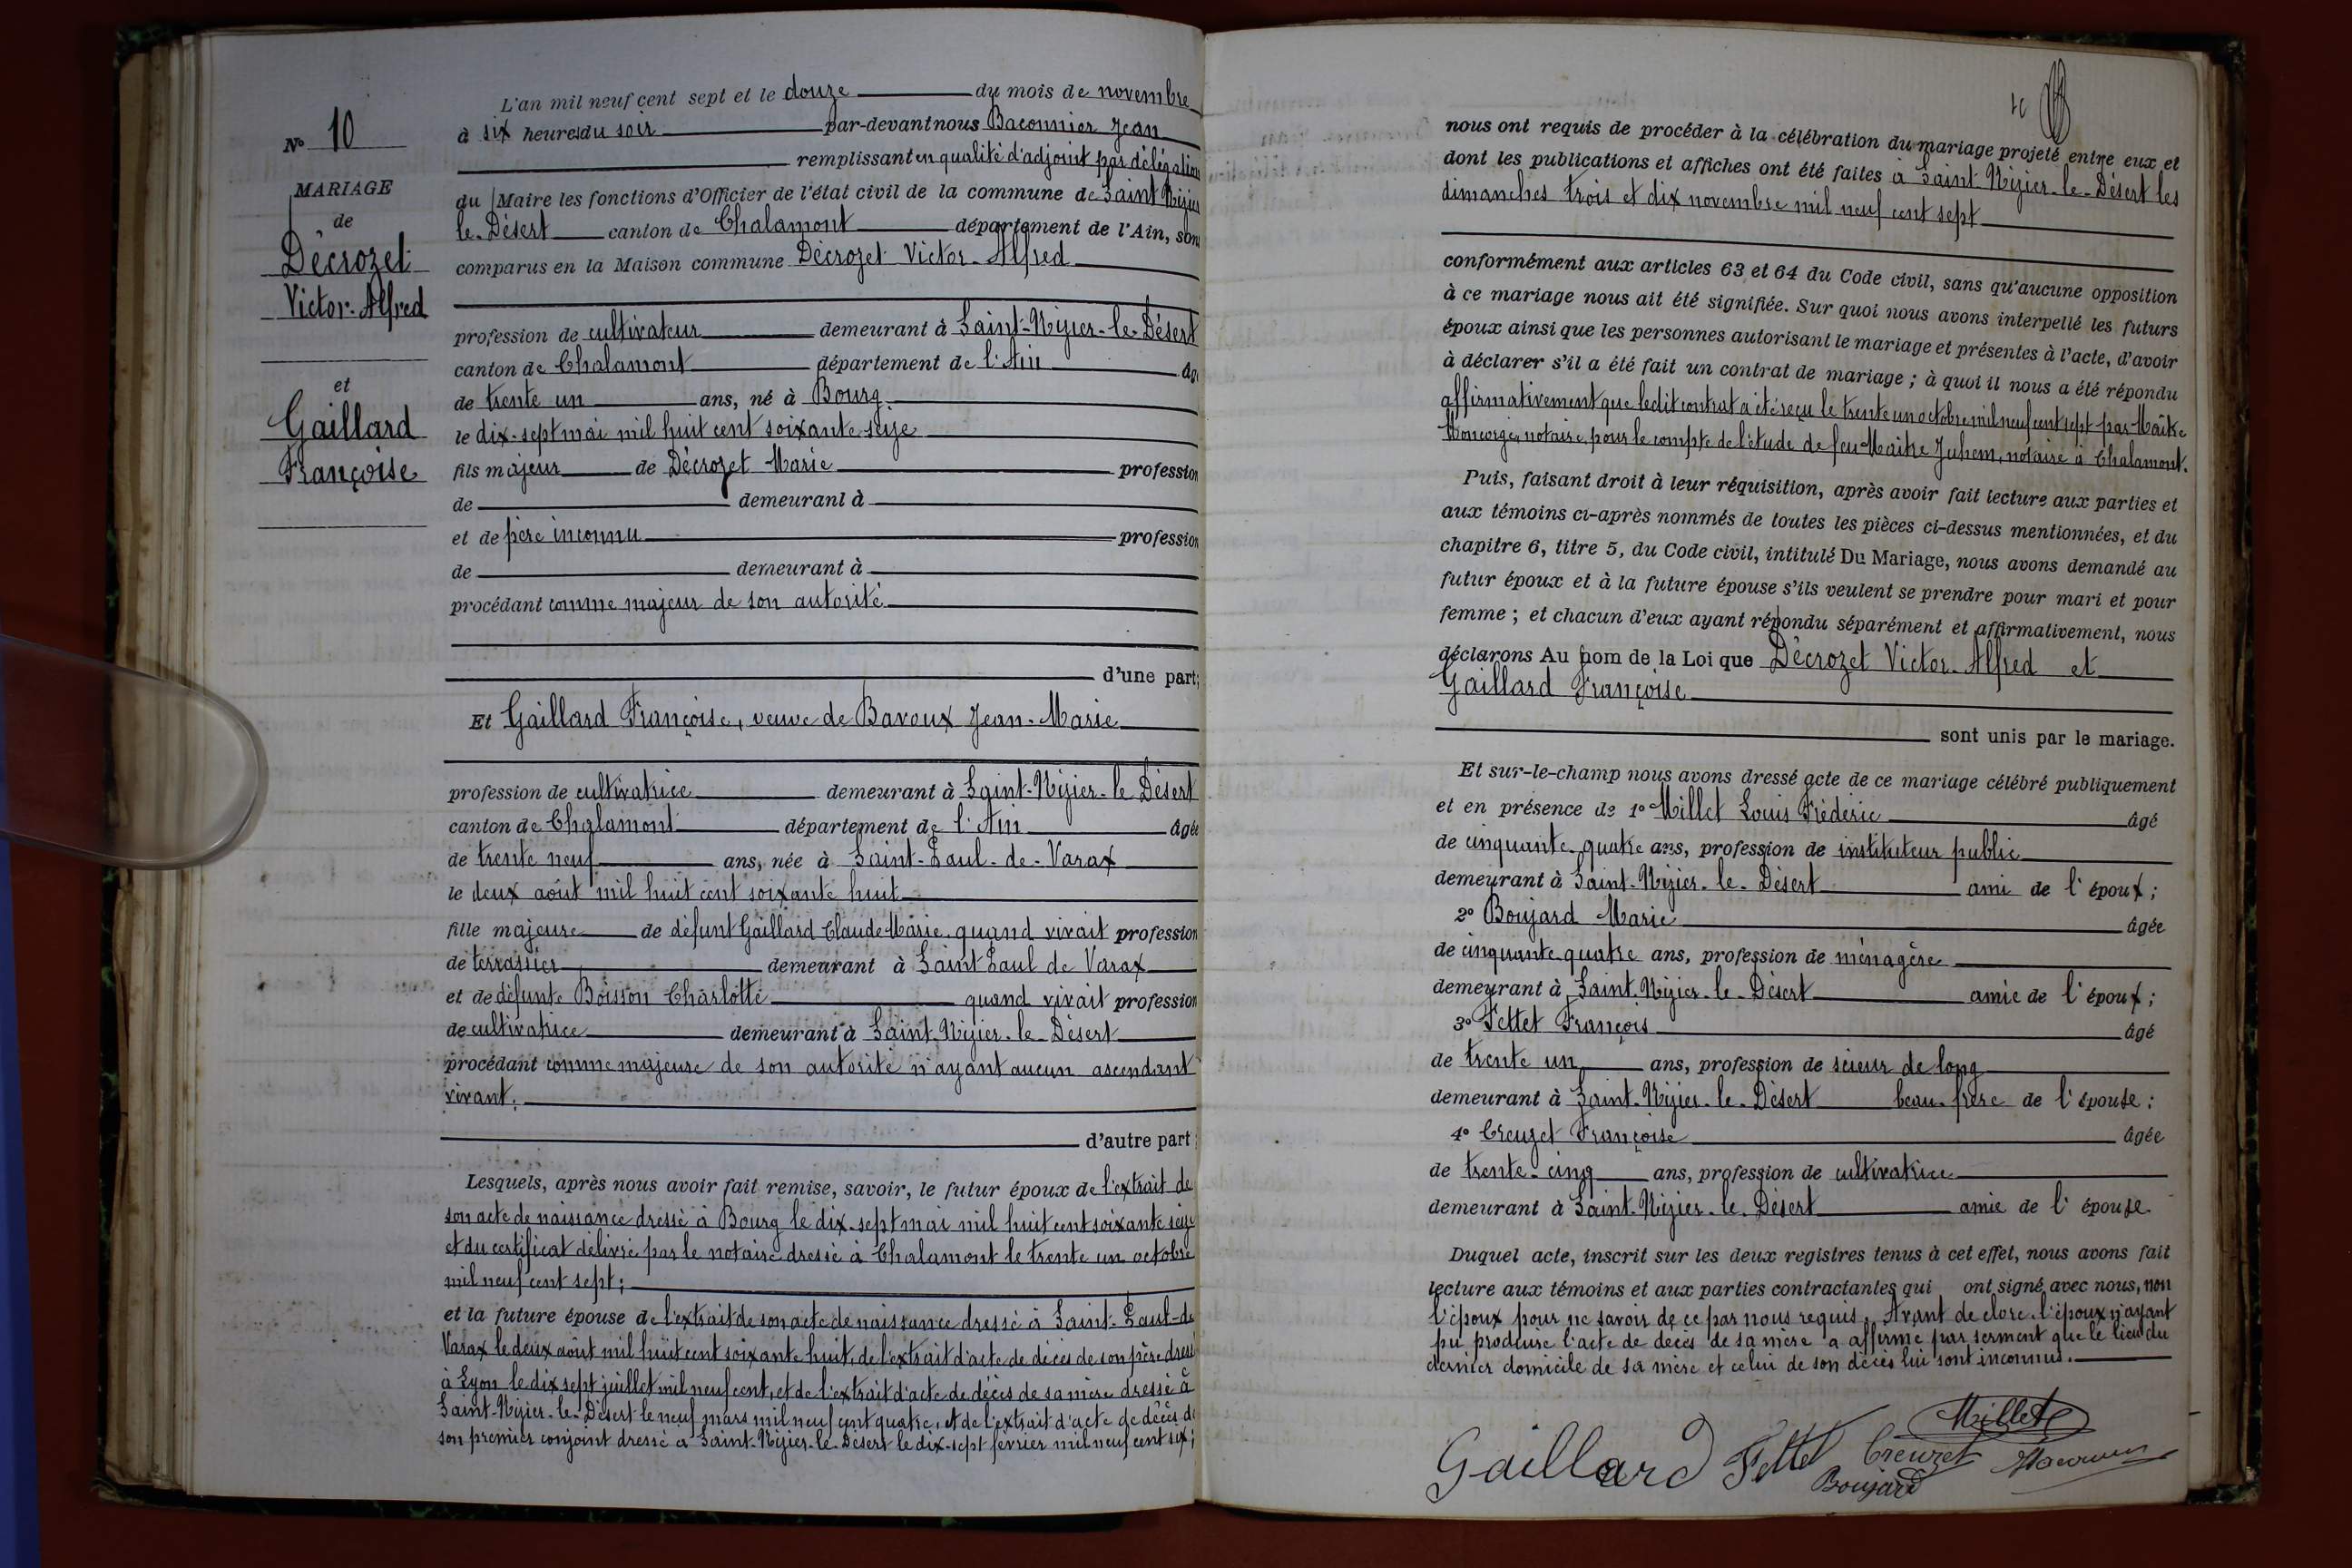 L'an mil neuf cent sept et le douze du mois de novembre
à six heures du soir par-devant nous Baconnier Jean
remplissant en qualité d'adjoint par délégation
du Maire les fonctions d'Officier de l'état civil de la commune de Saint Nizier
le-Désert canton de Chalamont département de l'Ain, son
comparus en la Maison commune Décrozet Victor-Alfred
profession de cultivateur demeurant à Saint-Nizier-le-Désert
canton de Chalamont département de l'Ain âg
de trente un ans, né à Bourg
le dix-sept mai mil huit cent soixante seize
fils majeur de Décrozet Marie profession
de demeurant à
et de père inconnu profession
de demeurant à
procédant comme majeur de son autorité
d'une part;
Et Gaillard Françoise, veuve de Bavoux Jean-Marie
profession de cultivatrice demeurant à Saint-Nizier-le-Désert
canton de Chalamont département de l'Ain âgée
de trente neuf ans, née à Saint-Paul-de-Varax
le deux août mil huit cent soixante huit
fille majeure de défunt Gaillard Claude Marie quand vivait profession
de terrassier demeurant à Saint Paul de Varax
et de défunte Boisson Charlotte quand vivait profession
de cultivatrice demeurant à Saint-Nizier-le-Désert
procédant comme majeure de son autorité n'ayant aucun ascendant
vivant.
d'autre part
Lesquels, après nous avoir fait remise, savoir, le futur époux de l'extrait de
son acte de naissance dressé à Bourg le dix-sept mai mil huit cent soixante seize
et du certificat délivré par le notaire dressé à Chalamont le trente un octobre
mil neuf cent sept;
et la future épouse de l'extrait de son acte de naissance dressé à Saint-Paul-de
Varax le deux août mil huit cent soixante huit, de l'extrait d'acte de décès de son père dressé
à Lyon le dix sept juillet mil neuf cent, et de l'extrait d'acte de décès de sa mère dressé à
Saint-Nizier-le-Désert le neuf mars mil neuf cent quatre, et de l'extrait d'acte de décès de
son premier conjoint dressé à Saint-Nizier-le-Désert le dix-sept février mil neuf cent six;
N° 10
MARIAGE
de
Décrozet
Victor-Alfred
et
Gaillard
Françoise
nous ont requis de procéder à la célébration du mariage projeté entre eux et
dont les publications et affiches ont été faites à Saint-Nizier-le-Désert les
dimanches trois et dix novembre mil neuf cent sept
conformément aux articles 63 et 64 du Code civil, sans qu'aucune opposition
à ce mariage nous ait été signifiée. Sur quoi nous avons interpellé les futurs
époux ainsi que les personnes autorisant le mariage et présentes à l'acte, d'avoir
à déclarer s'il a été fait un contrat de mariage ; à quoi il nous a été répondu
affirmativement que ledit contrat a été reçu le trente un octobre mil neuf cent sept par Maître
Moncorgé, notaire, pour le compte de l'étude de feu Maître Juhem, notaire à Chalamont.
Puis, faisant droit à leur réquisition, après avoir fait lecture aux parties et
aux témoins ci-après nommés de toutes les pièces ci-dessus mentionnées, et du
chapitre 6, titre 5, du Code civil, intitulé Du Mariage, nous avons demandé au
futur époux et à la future épouse s'ils veulent se prendre pour mari et pour
femme ; et chacun d'eux ayant répondu séparément et affirmativement, nous
déclarons Au nom de la Loi que Décrozet Victor-Alfred et
Gaillard Françoise
sont unis par le mariage.
Et sur-le-champ nous avons dressé acte de ce mariage célébré publiquement
et en présence de 1° Millet Louis Frédéric âgé
de cinquante-quatre ans, profession de instituteur public
demeurant à Saint-Nizier-le-Désert ami de l'époux ;
2° Boujard Marie âgée
de cinquante quatre ans, profession de ménagère
demeurant à Saint-Nizier-le-Désert amie de l'époux ;
3° Fettet François âgé
de trente un ans, profession de scieur de long
demeurant à Saint-Nizier-le-Désert beau-frère de l'épouse ;
4° Creuzet Françoise âgée
de trente-cinq ans, profession de cultivatrice
demeurant à Saint-Nizier-le-Désert amie de l'épouse.
Duquel acte, inscrit sur les deux registres tenus à cet effet, nous avons fait
lecture aux témoins et aux parties contractantes qui ont signé avec nous, non
l'époux pour ne savoir de ce par nous requis. Avant de clore l'époux n'ayant
pu produire l'acte de décès de sa mère a affirmé par serment que le lieu du
dernier domicile de sa mère et celui de son décès lui sont inconnus.
Millet
Gaillard Fettet Creuzet
Boujard